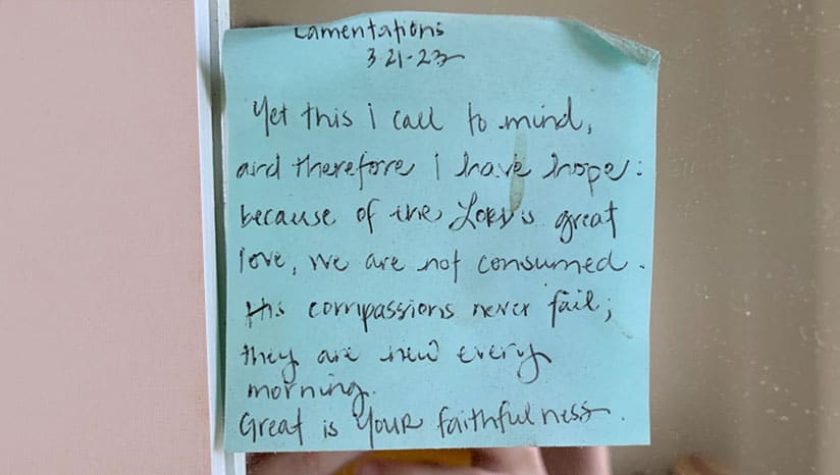 Lamentations
3 21-23
Yet this i call to mind,
and therefore i have hope:
because of the Lord's great
love, we are not consumed.
His compassions never fail;
they are new every
morning.
Great is your faithfulness.